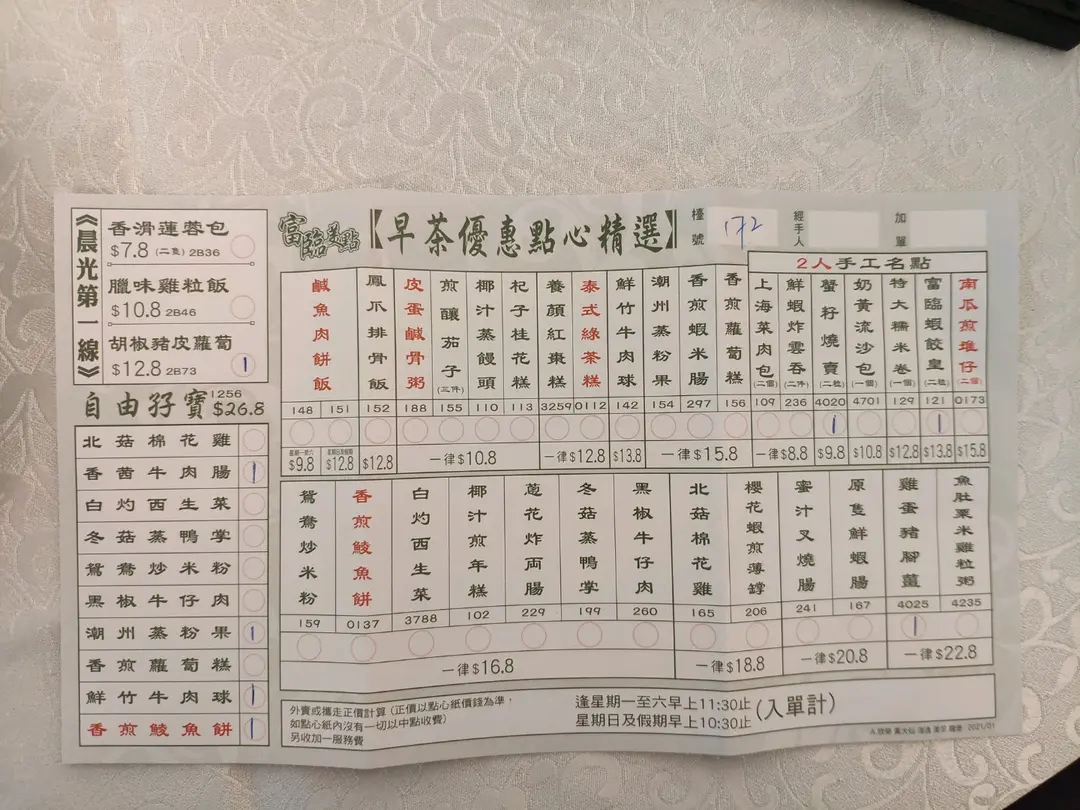 富臨美點
【早茶優惠點心精選】
檯號 172
經手人
加單
《晨光第一線》
香滑蓮蓉包
$7.8 (二隻) 2B36
臘味雞粒飯
$10.8 2B46
胡椒豬皮蘿蔔
$12.8 2B73 1
自由孖寶 1256 $26.8
北菇棉花雞
香茜牛肉腸 1
白灼西生菜
冬菇蒸鴨掌
鴛鴦炒米粉
黑椒牛仔肉
潮州蒸粉果 1
香煎蘿蔔糕
鮮竹牛肉球 1
香煎鯪魚餅 1
鹹魚肉餅飯
鳳爪排骨飯
皮蛋鹹骨粥
煎釀茄子(三件)
椰汁蒸饅頭
杞子桂花糕
養顏紅棗糕
泰式綠茶糕
鮮竹牛肉球
潮州蒸粉果
香煎蝦米腸
香煎蘿蔔糕
2人手工名點
上海菜肉包(二個)
鮮蝦炸雲吞(二件)
蟹籽燒賣(二粒)
奶黃流沙包(一個)
特大糯米卷(一個)
富臨蝦餃皇(二粒)
南瓜煎堆仔(二個)
148 151 152 188 155 110 113 3259 0112 142 154 297 156 109 236 4020 4701 129 121 0173
1 1
$9.8 $12.8 $12.8 一律$10.8 一律$12.8 $13.8 一律$15.8 一律$8.8 $9.8 $10.8 $12.8 $13.8 $15.8
鴛鴦炒米粉
香煎鯪魚餅
白灼西生菜
椰汁煎年糕
蔥花炸両腸
冬菇蒸鴨掌
黑椒牛仔肉
北菇棉花雞
櫻花蝦煎薄罉
蜜汁叉燒腸
原隻鮮蝦腸
雞蛋豬腳薑
魚肚粟米雞粒粥
159 0137 3788 102 229 199 260 165 206 241 167 4025 4235
1
一律$16.8 一律$18.8 一律$20.8 一律$22.8
外賣或攜走正價計算(正價以點心紙價錢為準,
如點心紙內沒有一切以中點收費)
另收加一服務費
逢星期一至六早上11:30止
星期日及假期早上10:30止
(入單計)
2021/01